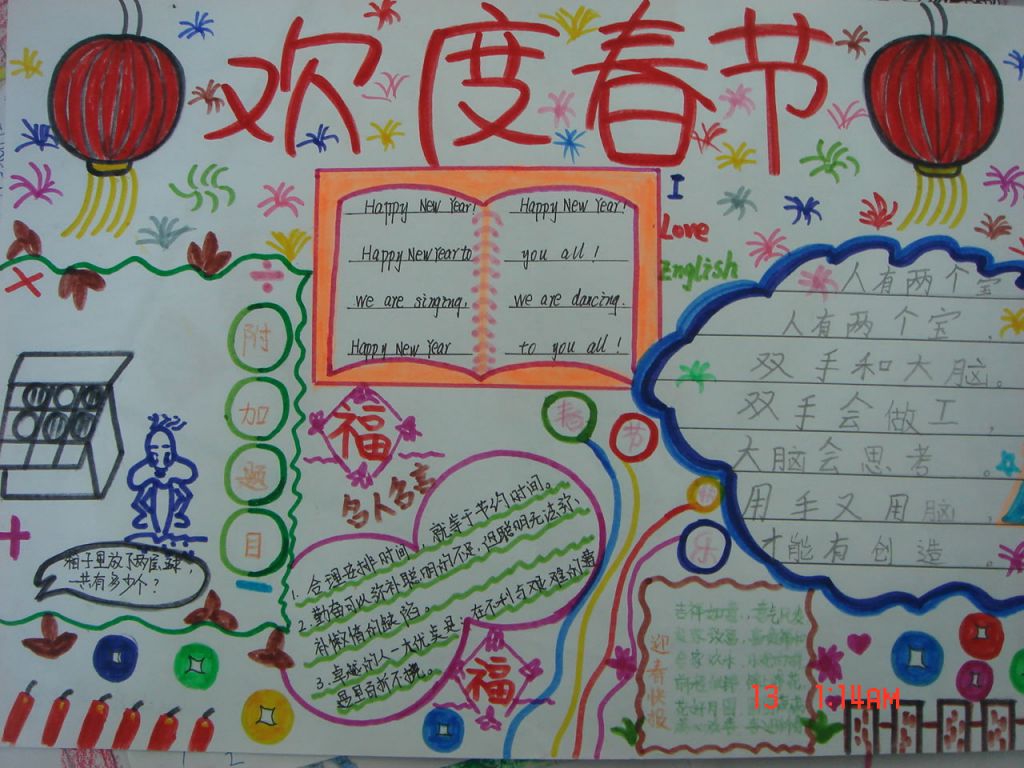 欢度春节
Happy New Year!
Happy New Year!
Happy New Year to
you all!
we are singing,
we are dancing.
Happy New Year
to you all!
I
Love
English
人有两个宝
人有两个宝,
双手和大脑。
双手会做工,
大脑会思考。
用手又用脑,
才能有创造
附
加
题
目
箱子里放了两层球,
一共有多少个?
福
名人名言
1. 合理安排时间,就等于节约时间。
2. 勤奋可以弥补聪明的不足,但聪明无法弥
补懒惰的缺陷。
3. 卓越的人一大优点是:在不利与艰难的遭
遇里百折不挠。
福
节
乐
迎春快报
13 1:14AM